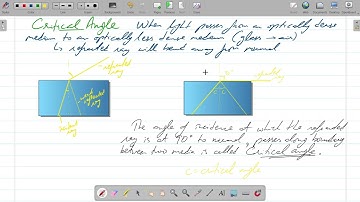 Critical Angle When light passes from an optically dense
medium to an optically less dense medium (glass → air)
↳ refracted ray will bend away from normal
refracted ray
weak reflected ray
incident ray
refracted ray
90°
The angle of incidence at which the refracted
ray is at 90° to normal, passes along boundary
between two media is called Critical angle.
c = critical angle